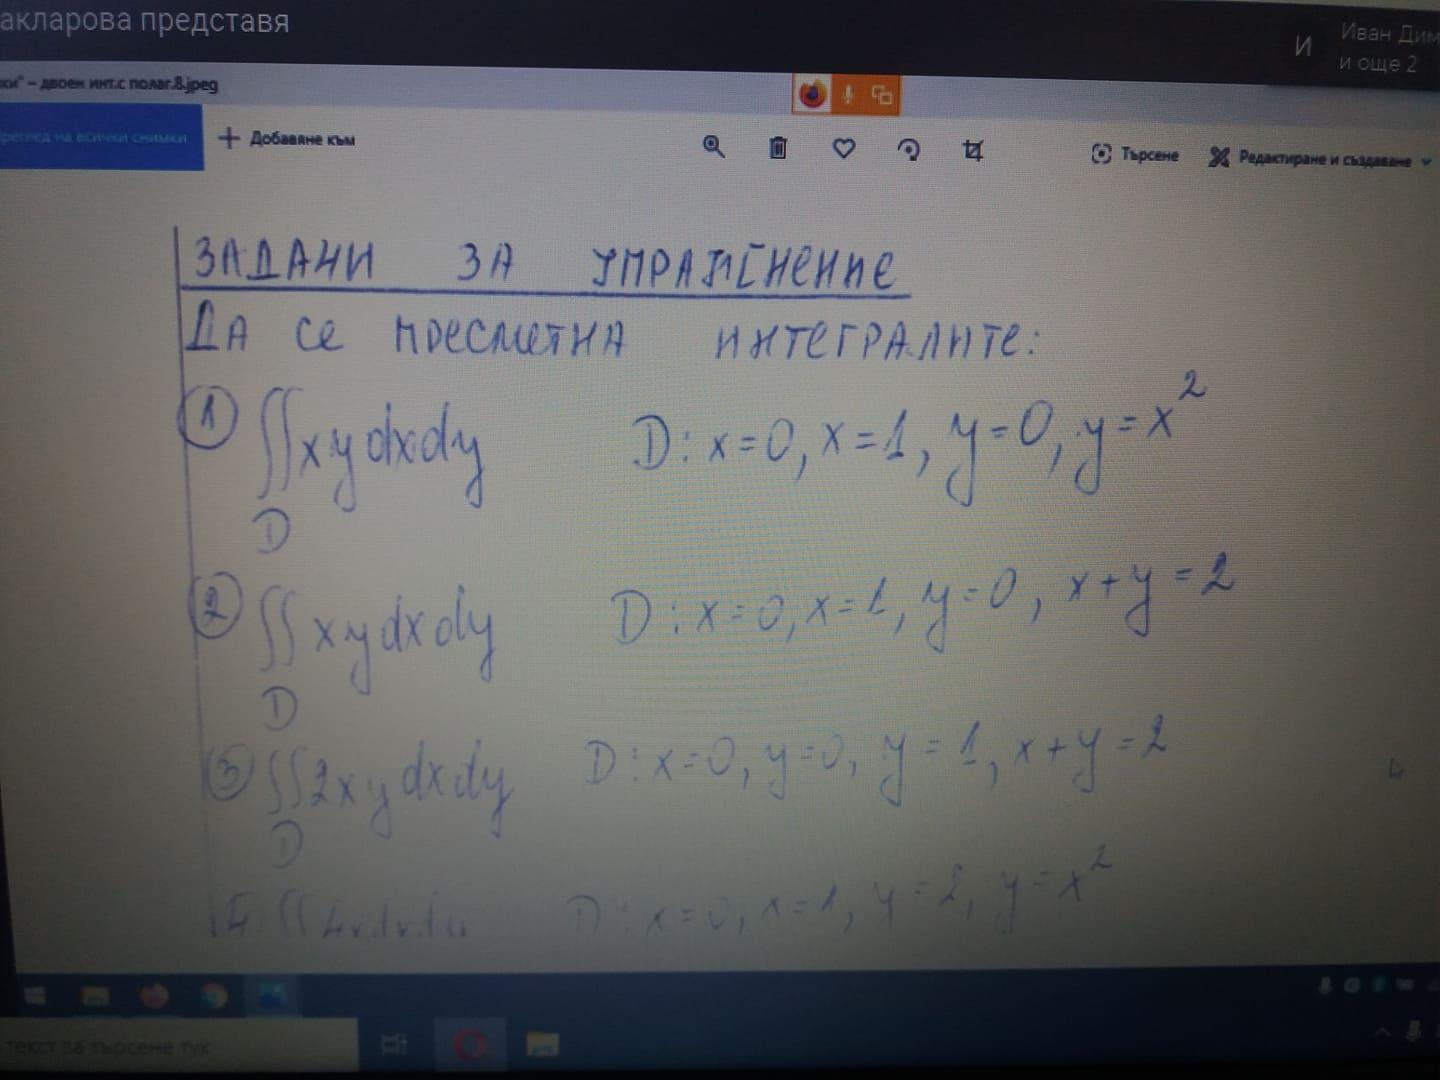 акларова представя
И
Иван Дим
и още 2
ки" – двоен инт.с полаг.8.jpeg
преглед на всички снимки
Добавяне към
Търсене
Редактиране и създаване
ЗАДАЧИ ЗА УПРАЖНЕНИЕ
ДА СЕ ПРЕСМЕТНА ИНТЕГРАЛИТЕ:
① ∬xydxdy D: x=0, x=1, y=0, y=x²
D
② ∬xydxdy D: x=0, x=1, y=0, x+y=2
D
③ ∬2xydxdy D: x=0, y=0, y=1, x+y=2
D
4. D: x=0, x=1, y=2, y=x²
текст за търсене тук